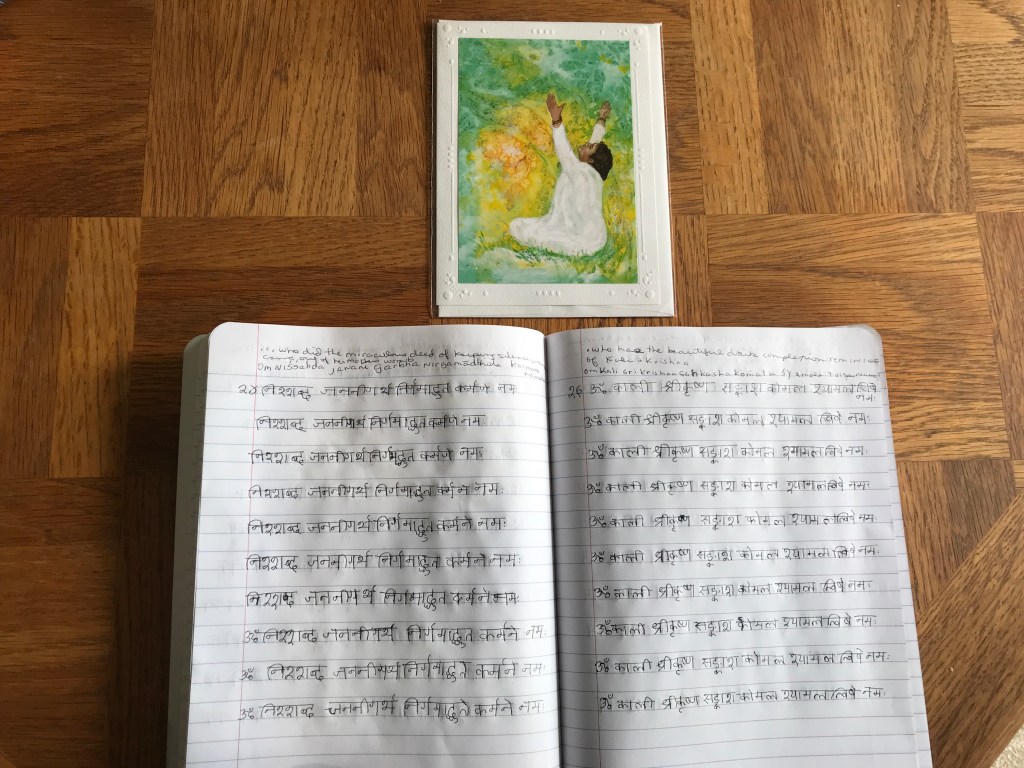 ... who did the miraculous deed of keeping silence
coming out of his mothers womb
Om Nissabda Janani Garbha Nirgamadbhuta Karmane
२५ निश्शब्द जननीगर्भ निर्गमाद्भुत कर्मणे नमः
निश्शब्द जननीगर्भ निर्गमाद्भुत कर्मणे नमः
निश्शब्द जननीगर्भ निर्गमाद्भुत कर्मणे नमः
निश्शब्द जननीगर्भ निर्गमाद्भुत कर्मने नमः
निश्शब्द जननीगर्भ निर्गमाद्भुत कर्मने नमः
निश्शब्द जननीगर्भ निर्गमाद्भुत कर्मने नमः
निश्शब्द जननीगर्भ निर्गमाद्भुत कर्मने नमः
ॐ निश्शब्द जननीगर्भ निर्गमाद्भुत कर्मने नमः
ॐ निश्शब्द जननीगर्भ निर्गमाद्भुत कर्मने नमः
ॐ निश्शब्द जननीगर्भ निर्गमाद्भुत कर्मने नमः
. who have the beautiful dark complexion
of Kali & Krishna
om Kali sri krishna
२६ ॐ काली श्रीकृष्ण सङ्काश कोमल श्यामल त्विषे
नमः
ॐ काली श्रीकृष्ण सङ्काश कोमल श्यामल त्विषे नमः
ॐ काली श्रीकृष्ण सङ्काश कोमल श्यामल त्विषे नमः
ॐ काली श्रीकृष्ण सङ्काश कोमल श्यामल त्विषे नमः
ॐ काली श्रीकृष्ण सङ्काश कोमल श्यामल त्विषे नमः
ॐ काली श्रीकृष्ण सङ्काश कोमल श्यामल त्विषे नमः
ॐ काली श्रीकृष्ण सङ्काश कोमल श्यामल त्विषे नमः
ॐ काली श्रीकृष्ण सङ्काश कोमल श्यामल त्विषे नमः
ॐ काली श्रीकृष्ण सङ्काश कोमल श्यामल त्विषे नमः
ॐ काली श्रीकृष्ण सङ्काश कोमल श्यामल त्विषे नमः